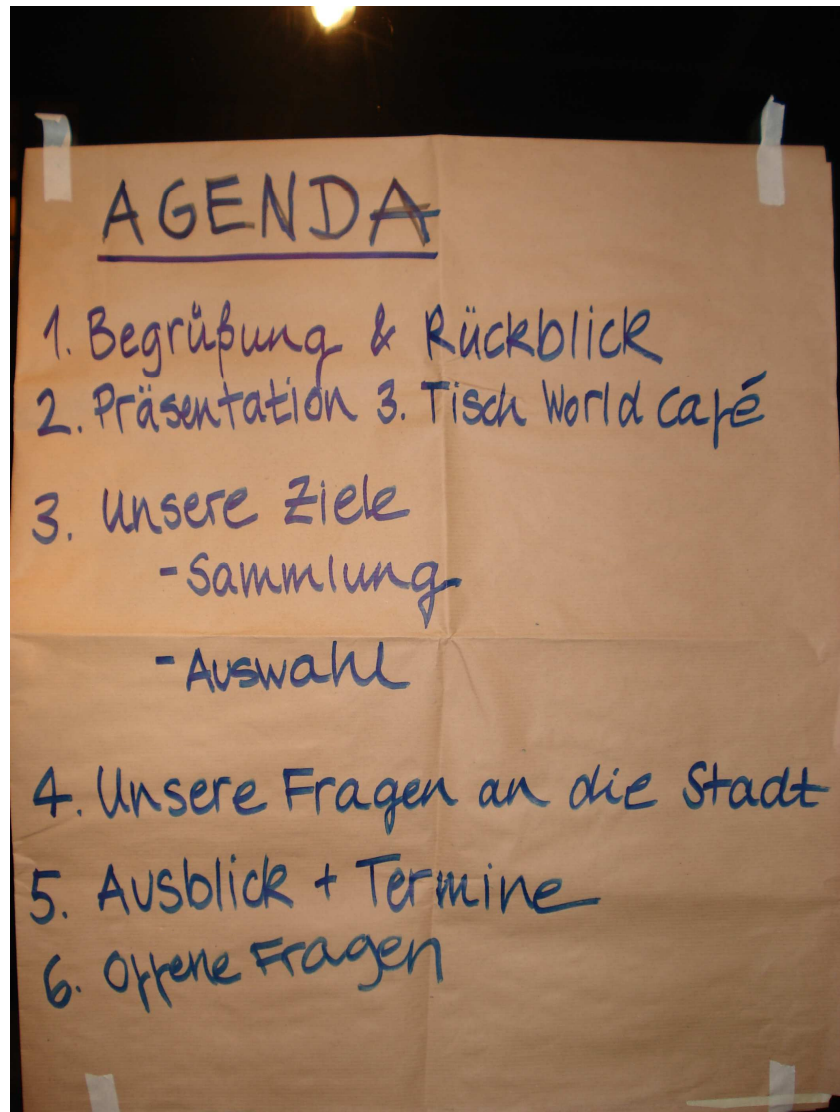 AGENDA
1. Begrüßung & Rückblick
2. Präsentation 3. Tisch World Café
3. Unsere Ziele
- Sammlung
- Auswahl
4. Unsere Fragen an die Stadt
5. Ausblick + Termine
6. Offene Fragen